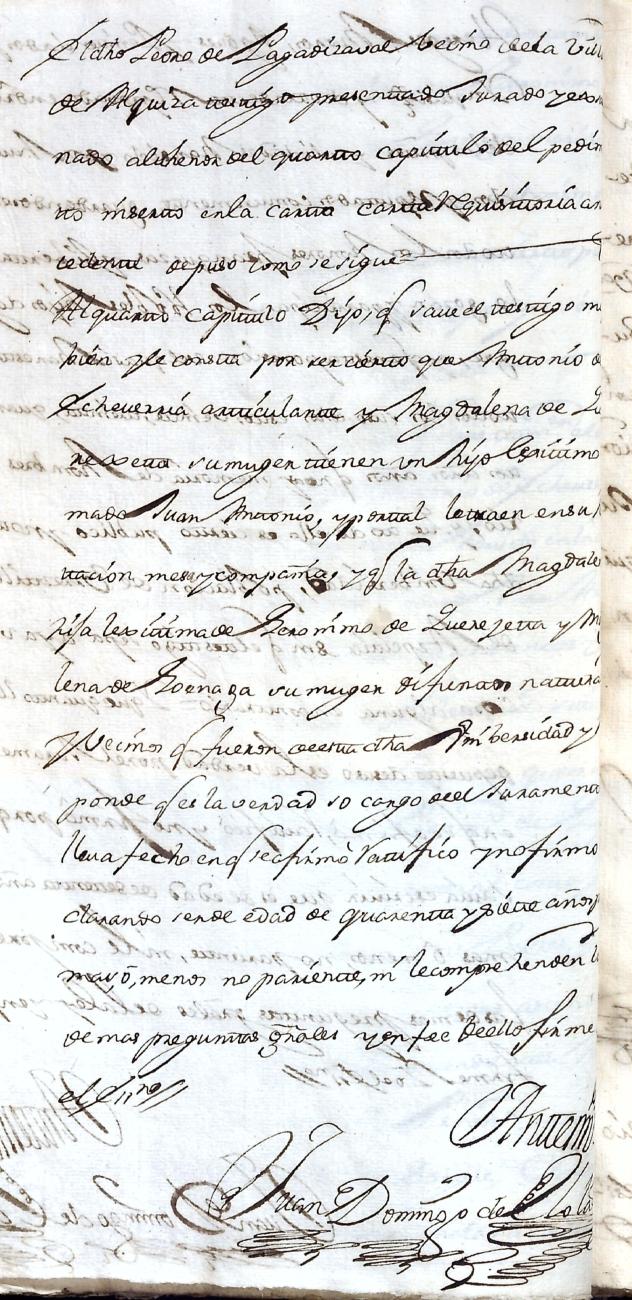 El dho Pedro de Lagadizaval Vecino dela Vill
de Alquiza testigo presentado Jurado y exa
nado al thenor del quarto capitulo del pedim
to inserto en la carta carta Requisitoria an
tedente depuso como se sigue
Al quarto capitulo Dijo, q save el testigo m
bien y le consta por ser cierto que Antonio d
Echeverria articulante y Magdalena de Qu
rexeta su muger tienen un hijo lexitimo
mado Juan Antonio, y por tal le traen en su
tacion mesa y compañia, y q la dha Magdale
hija lexitima de Geronimo de Querejeta y M
lena de su muger difuntos natura
y Vecinos q fueron de esta dha Vnibersidad y
ponde q es la verdad so cargo de el Juramento
lleva fecho en q se afirmò Ratifico y no firmo
clarando ser de edad de quarenta y siete años
mas ò, menos no pariente, ni le comprehenden l
demas preguntas grāles y en fee de ello firme
el ssno
Antemi
Juan Domingo de